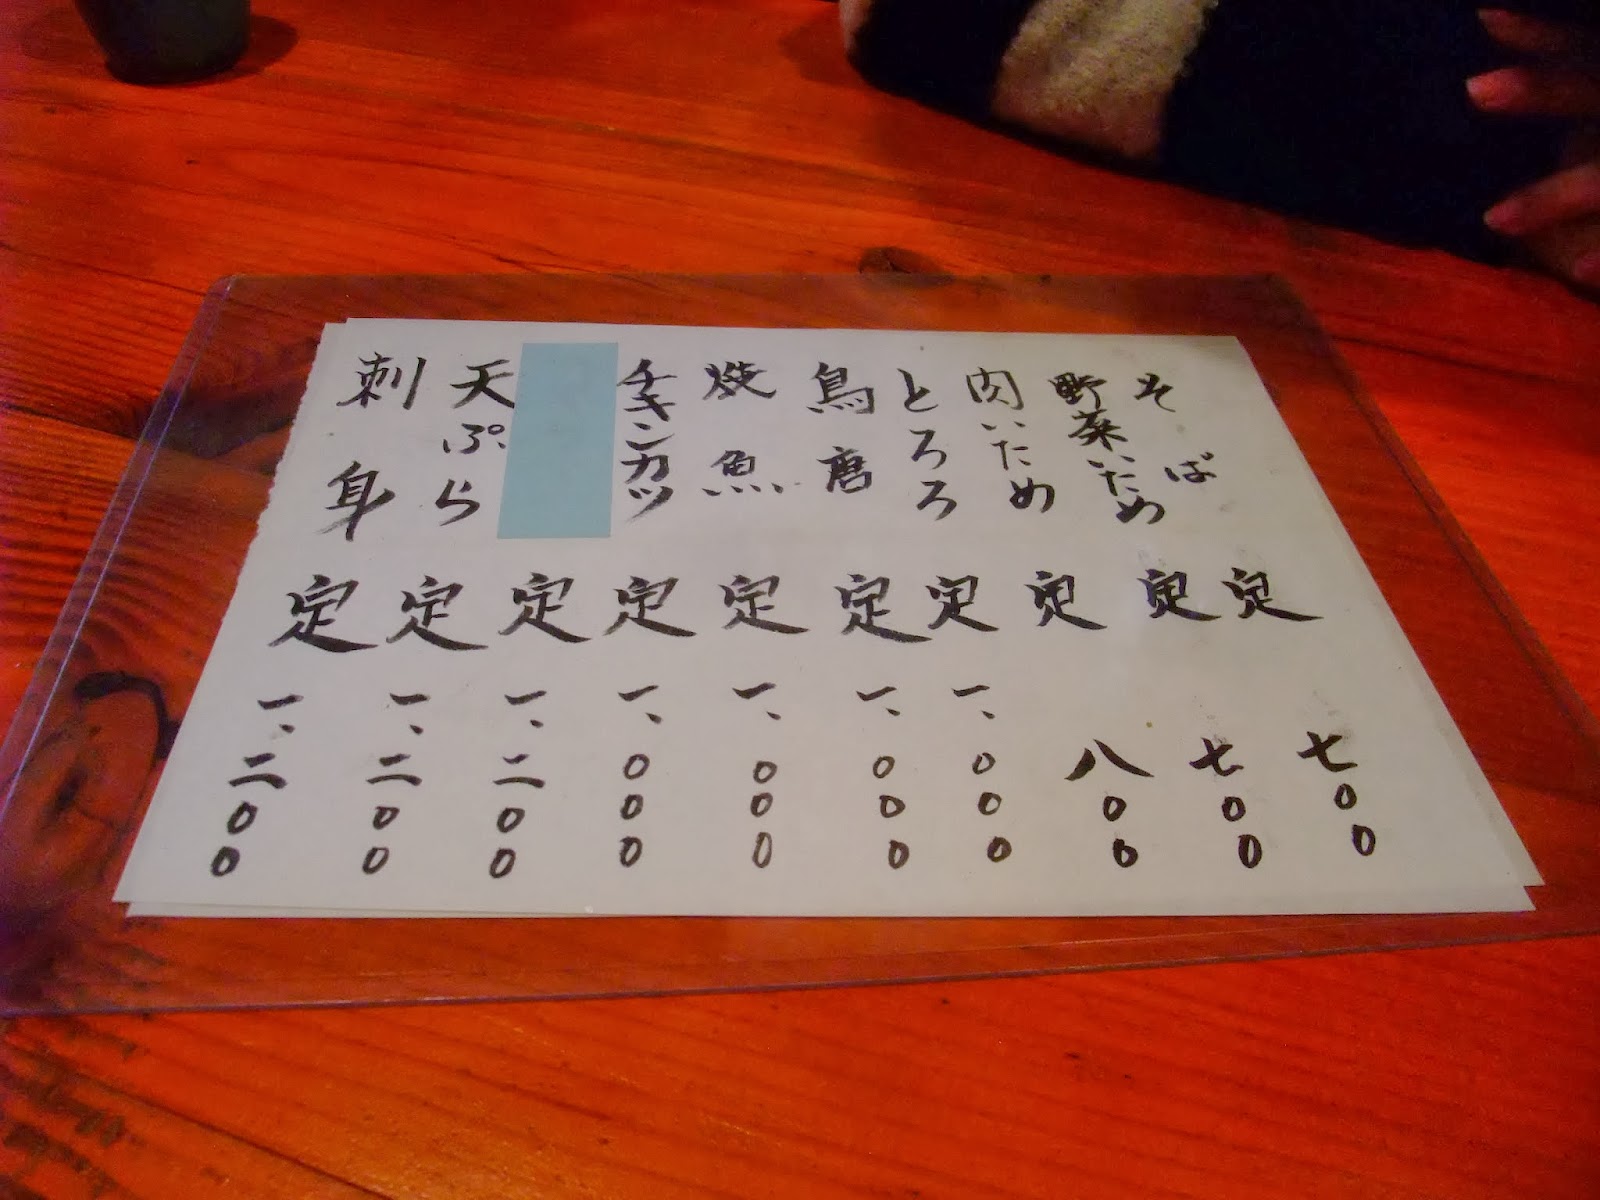 そば定 七〇〇
野菜いため定 七〇〇
肉いため定 八〇〇
とろろ定 一、〇〇〇
鳥唐定 一、〇〇〇
焼魚定 一、〇〇〇
チキンカツ定 一、〇〇〇
定 一、二〇〇
天ぷら定 一、二〇〇
刺身定 一、二〇〇